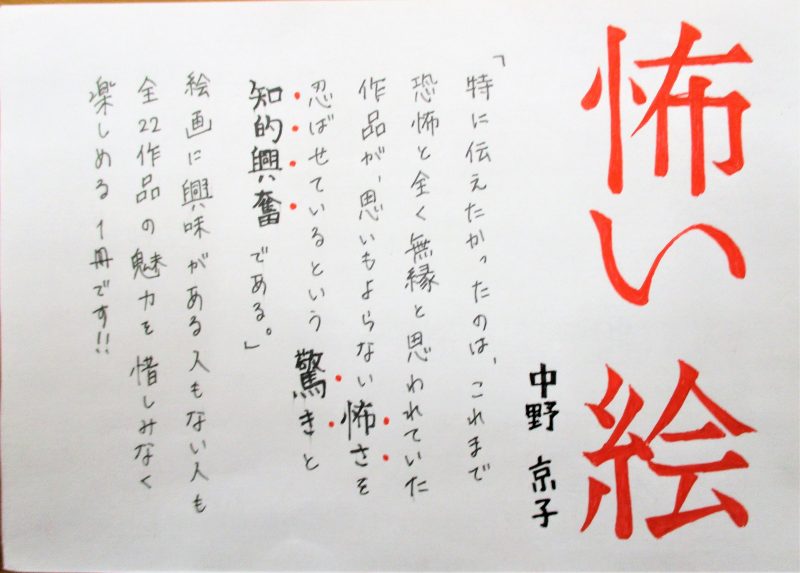 怖い絵
中野 京子
「特に伝えたかったのは、これまで
恐怖と全く無縁と思われていた
作品が、思いもよらない怖さを
忍ばせているという驚きと
知的興奮である。」
絵画に興味がある人もない人も
全22作品の魅力を惜しみなく
楽しめる1冊です!!